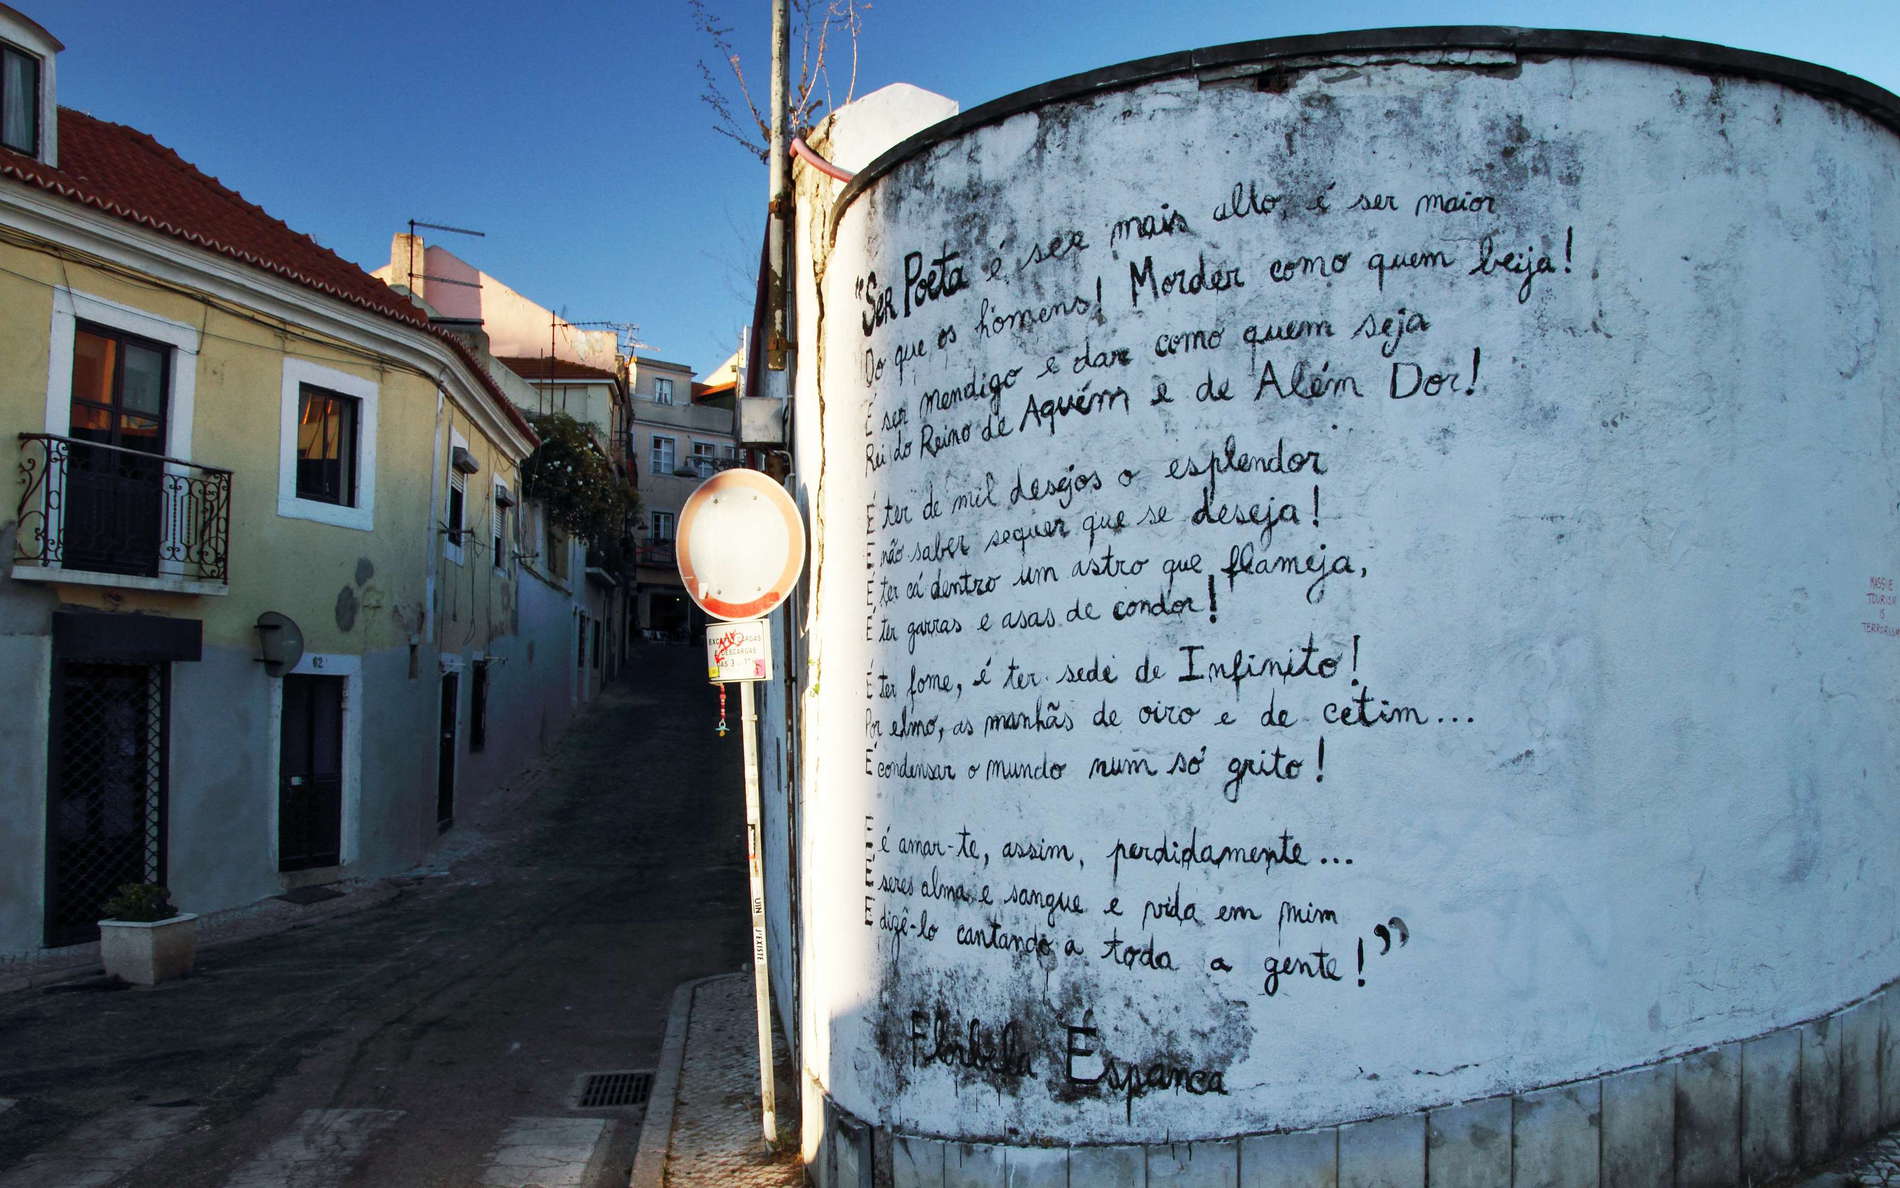 "Ser Poeta é ser mais alto, é ser maior
Do que os homens! Morder como quem beija!
É ser mendigo e dar como quem seja
Rei do Reino de Aquém e de Além Dor!
É ter de mil desejos o esplendor
E não saber sequer que se deseja!
É ter cá dentro um astro que flameja,
É ter garras e asas de condor!
É ter fome, é ter sede de Infinito!
Por elmo, as manhãs de oiro e de cetim...
É condensar o mundo num só grito!
E é amar-te, assim, perdidamente...
É seres alma e sangue e vida em mim
E dizê-lo cantando a toda a gente!"
Florbela Espanca
62
DESCARGAS
UIN
J'EXISTE
MASSIVE
TOURISM
IS
TERRORISM